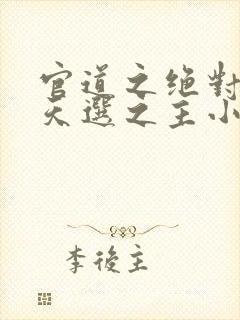 官道之绝對
天選之主小
李後主